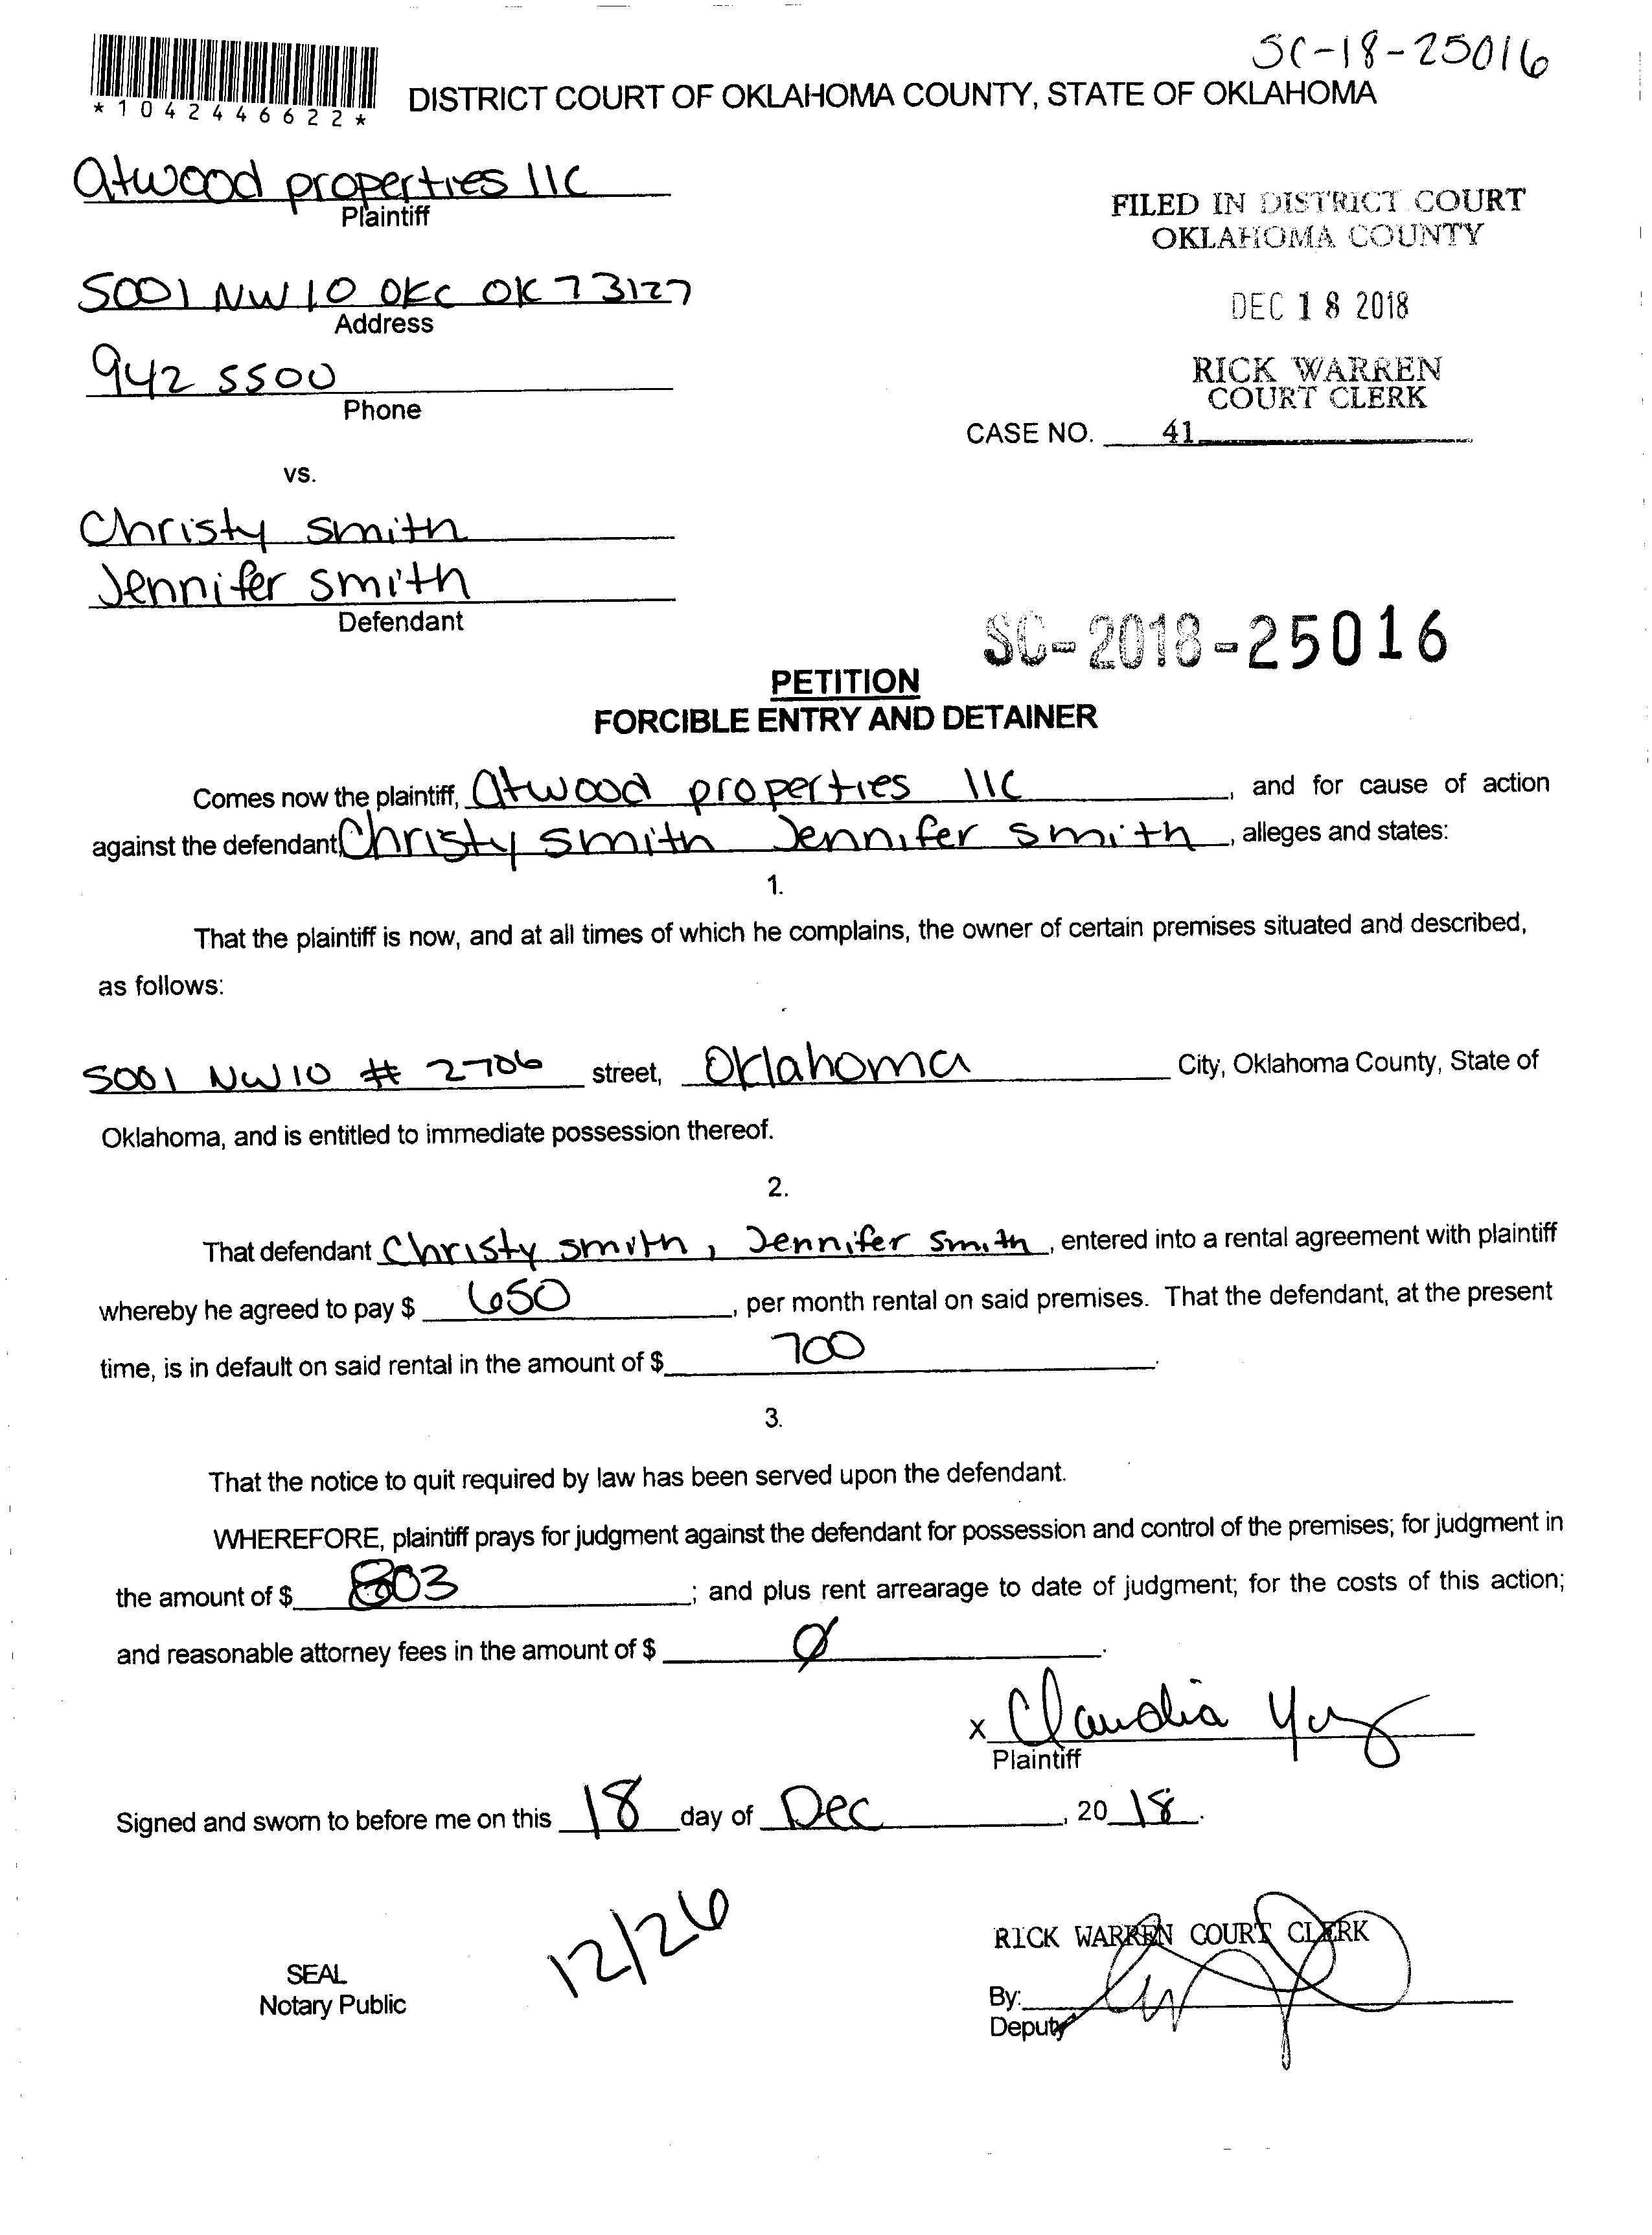 SC-18-25016
*1042446622*
DISTRICT COURT OF OKLAHOMA COUNTY, STATE OF OKLAHOMA
Atwood properties llc
Plaintiff
FILED IN DISTRICT COURT
OKLAHOMA COUNTY
5001 NW 10 OKC OK 73127
Address
DEC 18 2018
942 5500
Phone
RICK WARREN
COURT CLERK
CASE NO. 41
vs.
Christy Smith
Jennifer Smith
Defendant
SC-2018-25016
PETITION
FORCIBLE ENTRY AND DETAINER
Comes now the plaintiff, Atwood properties llc, and for cause of action
against the defendant, Christy Smith Jennifer Smith, alleges and states:
1.
That the plaintiff is now, and at all times of which he complains, the owner of certain premises situated and described,
as follows:
5001 NW 10 # 2706 street, Oklahoma City, Oklahoma County, State of
Oklahoma, and is entitled to immediate possession thereof.
2.
That defendant Christy Smith, Jennifer Smith, entered into a rental agreement with plaintiff
whereby he agreed to pay $ 650, per month rental on said premises. That the defendant, at the present
time, is in default on said rental in the amount of $ 700.
3.
That the notice to quit required by law has been served upon the defendant.
WHEREFORE, plaintiff prays for judgment against the defendant for possession and control of the premises; for judgment in
the amount of $ 803; and plus rent arrearage to date of judgment; for the costs of this action;
and reasonable attorney fees in the amount of $ Ø.
x Claudia
Plaintiff
Signed and sworn to before me on this 18 day of Dec, 2018.
12/26
SEAL
Notary Public
RICK WARREN COURT CLERK
By:
Deputy